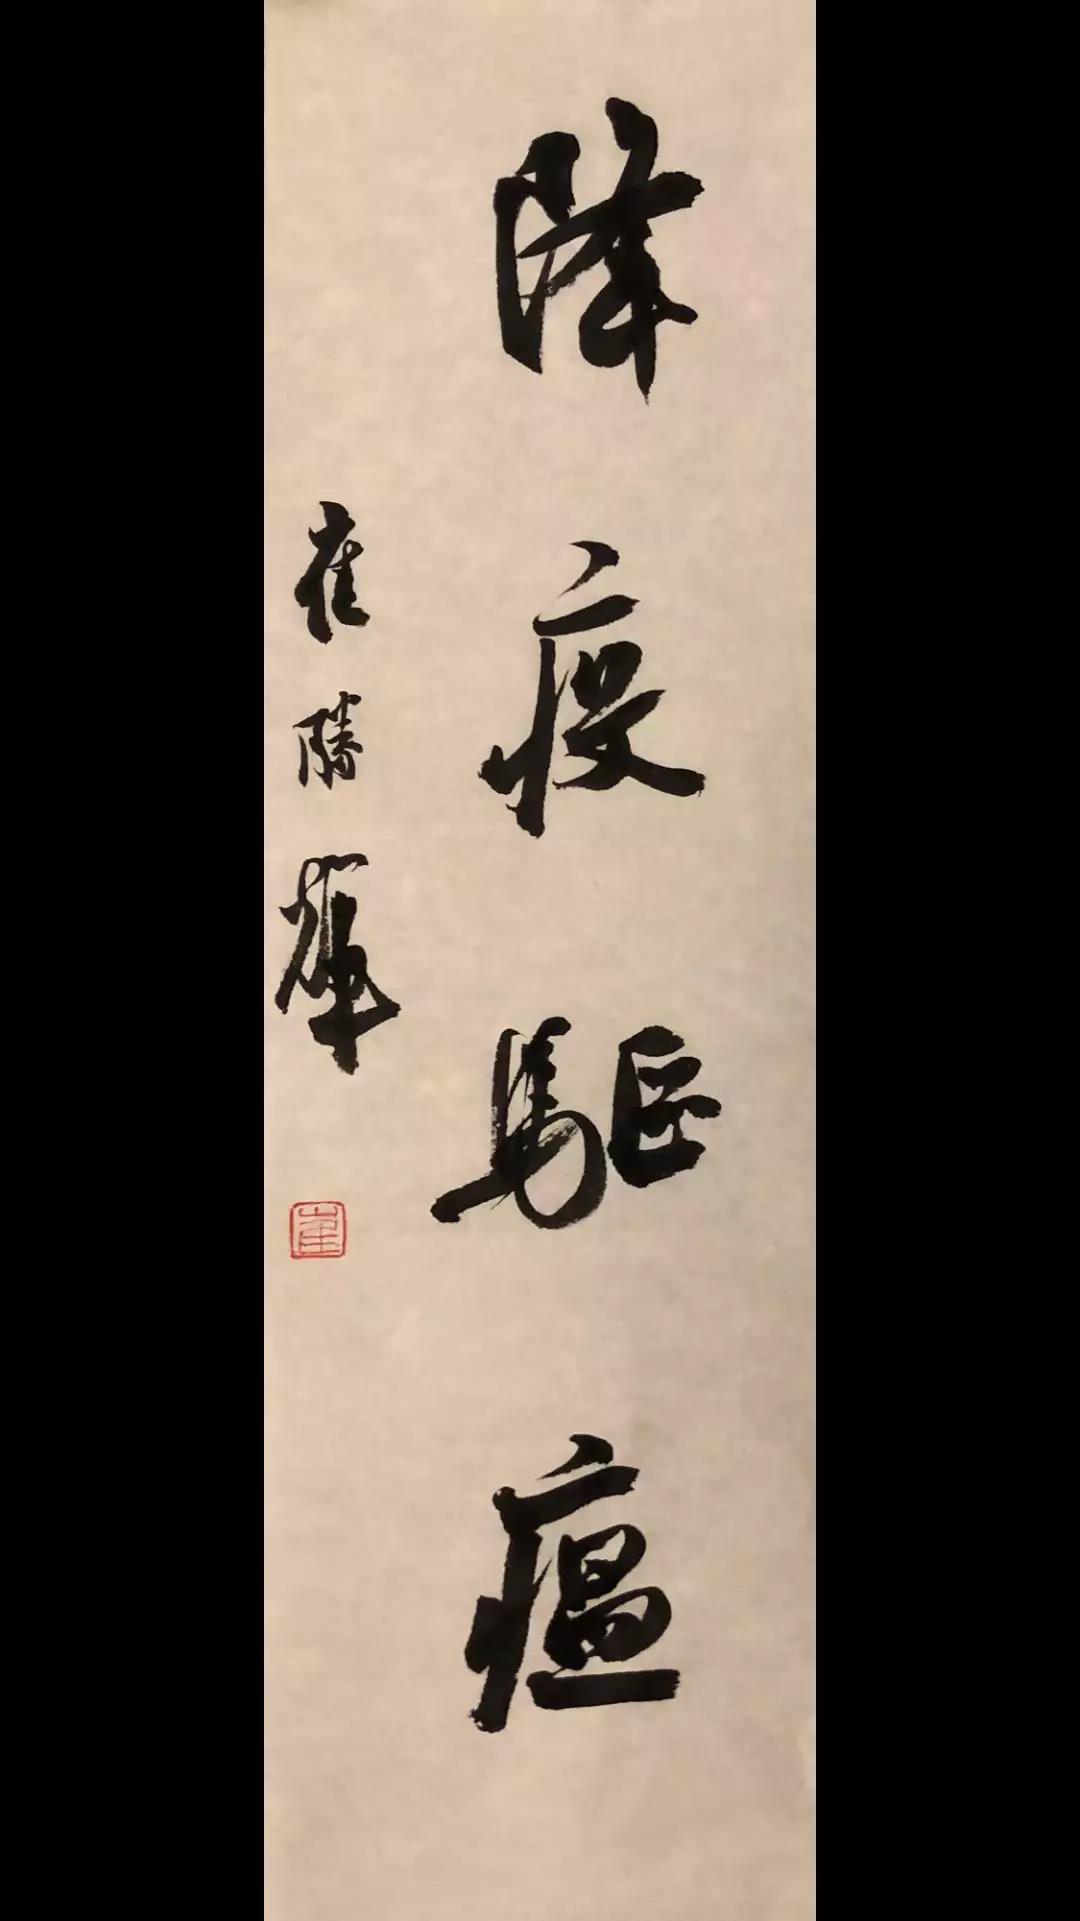 降疫驅瘟
崔勝輝
崔